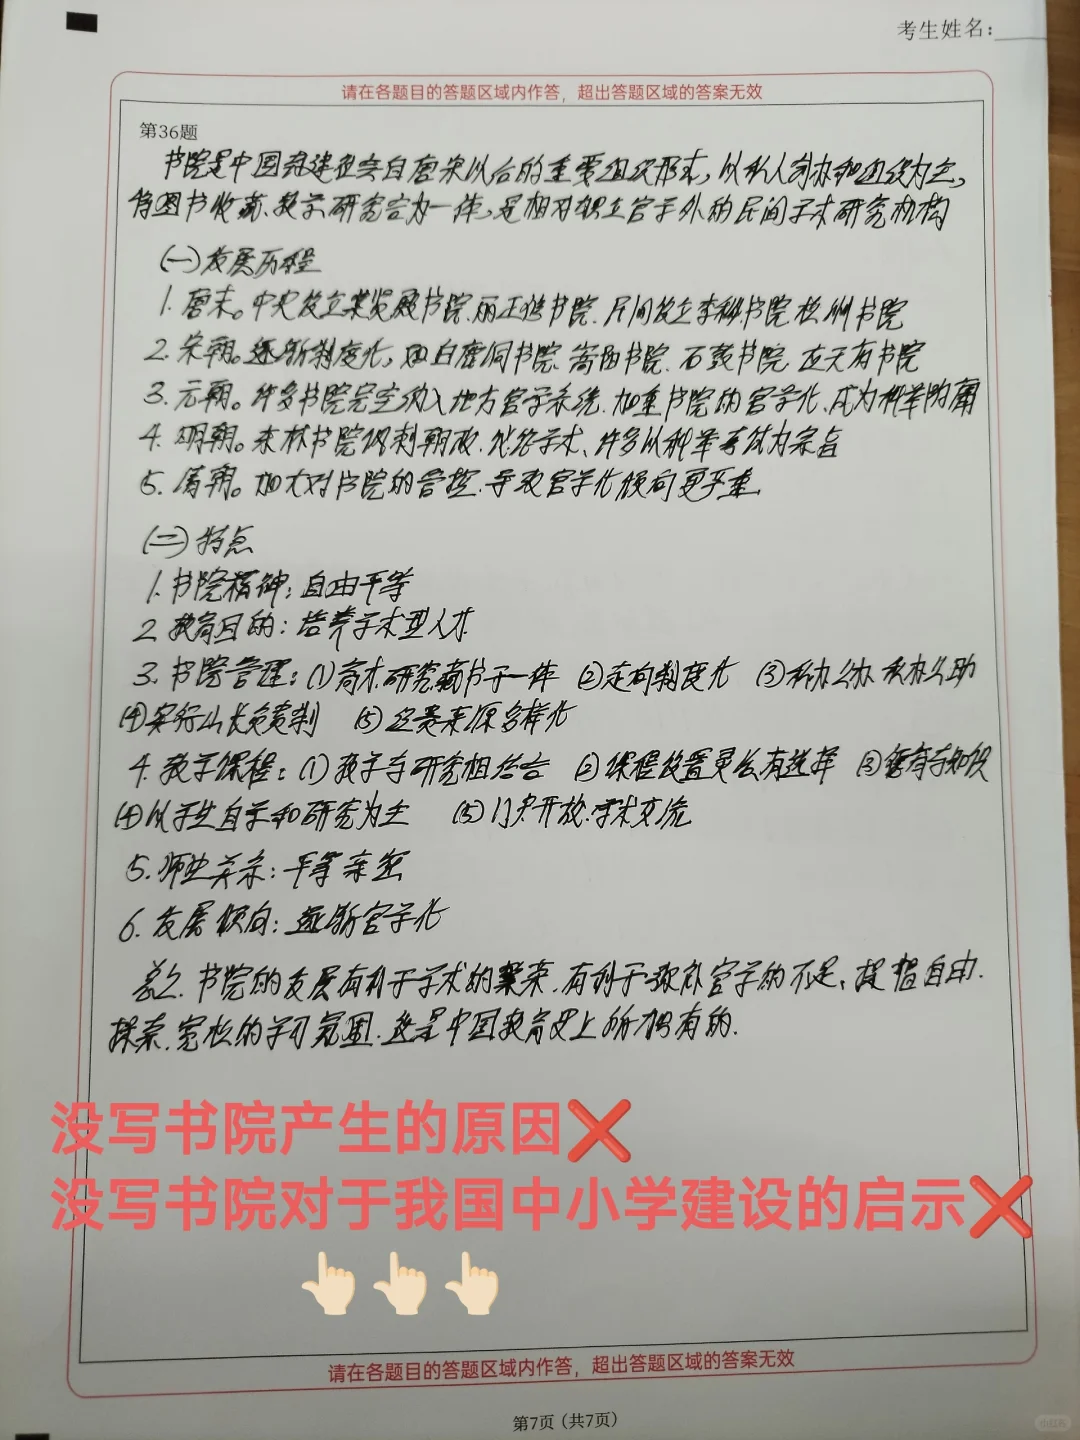 考生姓名:
请在各题目的答题区域内作答，超出答题区域的答案无效
第36题
书院是中国封建社会自唐宋以后的重要组织形式，以私人创办和组织为主，
将图书收藏、教学、研究合为一体，是相对独立官学外的民间学术研究机构
(一)发展历程
1. 唐末。中央设立集贤殿书院、丽正修书院、民间设立李秘书院、松洲书院
2. 宋朝。逐渐制度化，如白鹿洞书院、嵩阳书院、石鼓书院、应天府书院
3. 元朝。许多书院完全纳入地方官学系统、加重书院的官学化、成为科举附庸
4. 明朝。东林书院讽刺朝政、谈论学术、许多以科举考试为宗旨
5. 清朝。加大对书院的管控、导致官学化倾向更严重
(二)特点
1. 书院精神：自由平等
2. 教育目的：培养学术型人才
3. 书院管理：(1)育才、研究、藏书于一体 ②走向制度化 ③私办公办、私办公助
(4)实行山长负责制 (5)经费来源多样化
4. 教学课程：(1)教学与研究相结合 ②课程设置灵活有选择 ③德育与知识
(4)以学生自学和研究为主 (5)门户开放、学术交流
5. 师生关系：平等亲密
6. 发展倾向：逐渐官学化
总之，书院的发展有利于学术的繁荣、有利于弥补官学的不足、提倡自由、
探索、宽松的学习氛围、这是中国教育史上所拥有的.
没写书院产生的原因❌
没写书院对于我国中小学建设的启示❌
👆👆👆
请在各题目的答题区域内作答，超出答题区域的答案无效
第7页（共7页）
小红书